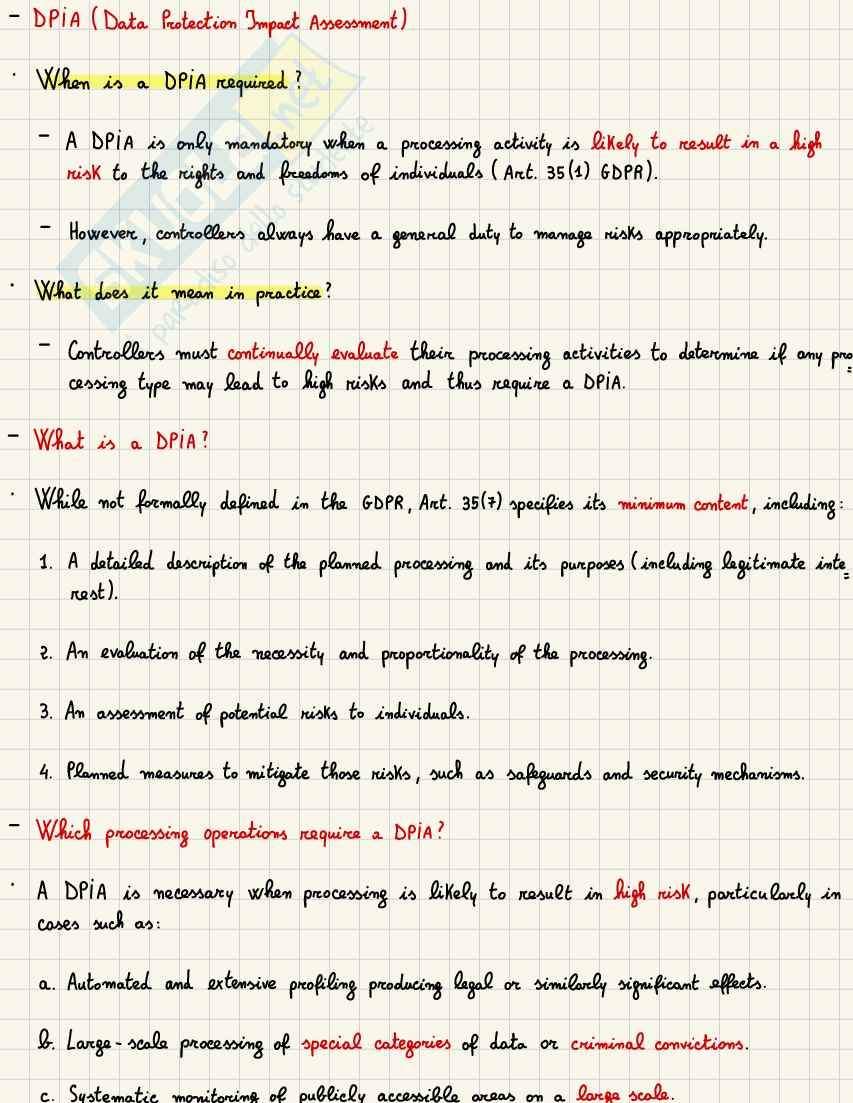 - DPiA (Data Protection Impact Assessment)
· When is a DPiA required?
- A DPiA is only mandatory when a processing activity is likely to result in a high
risk to the rights and freedoms of individuals (Art. 35(1) GDPR).
- However, controllers always have a general duty to manage risks appropriately.
· What does it mean in practice?
- Controllers must continually evaluate their processing activities to determine if any pro=
cessing type may lead to high risks and thus require a DPiA.
- What is a DPiA?
· While not formally defined in the GDPR, Art. 35(7) specifies its minimum content, including:
1. A detailed description of the planned processing and its purposes (including legitimate inte=
rest).
2. An evaluation of the necessity and proportionality of the processing.
3. An assessment of potential risks to individuals.
4. Planned measures to mitigate those risks, such as safeguards and security mechanisms.
- Which processing operations require a DPiA?
· A DPiA is necessary when processing is likely to result in high risk, particularly in
cases such as:
a. Automated and extensive profiling producing legal or similarly significant effects.
b. Large-scale processing of special categories of data or criminal convictions.
c. Systematic monitoring of publicly accessible areas on a large scale.